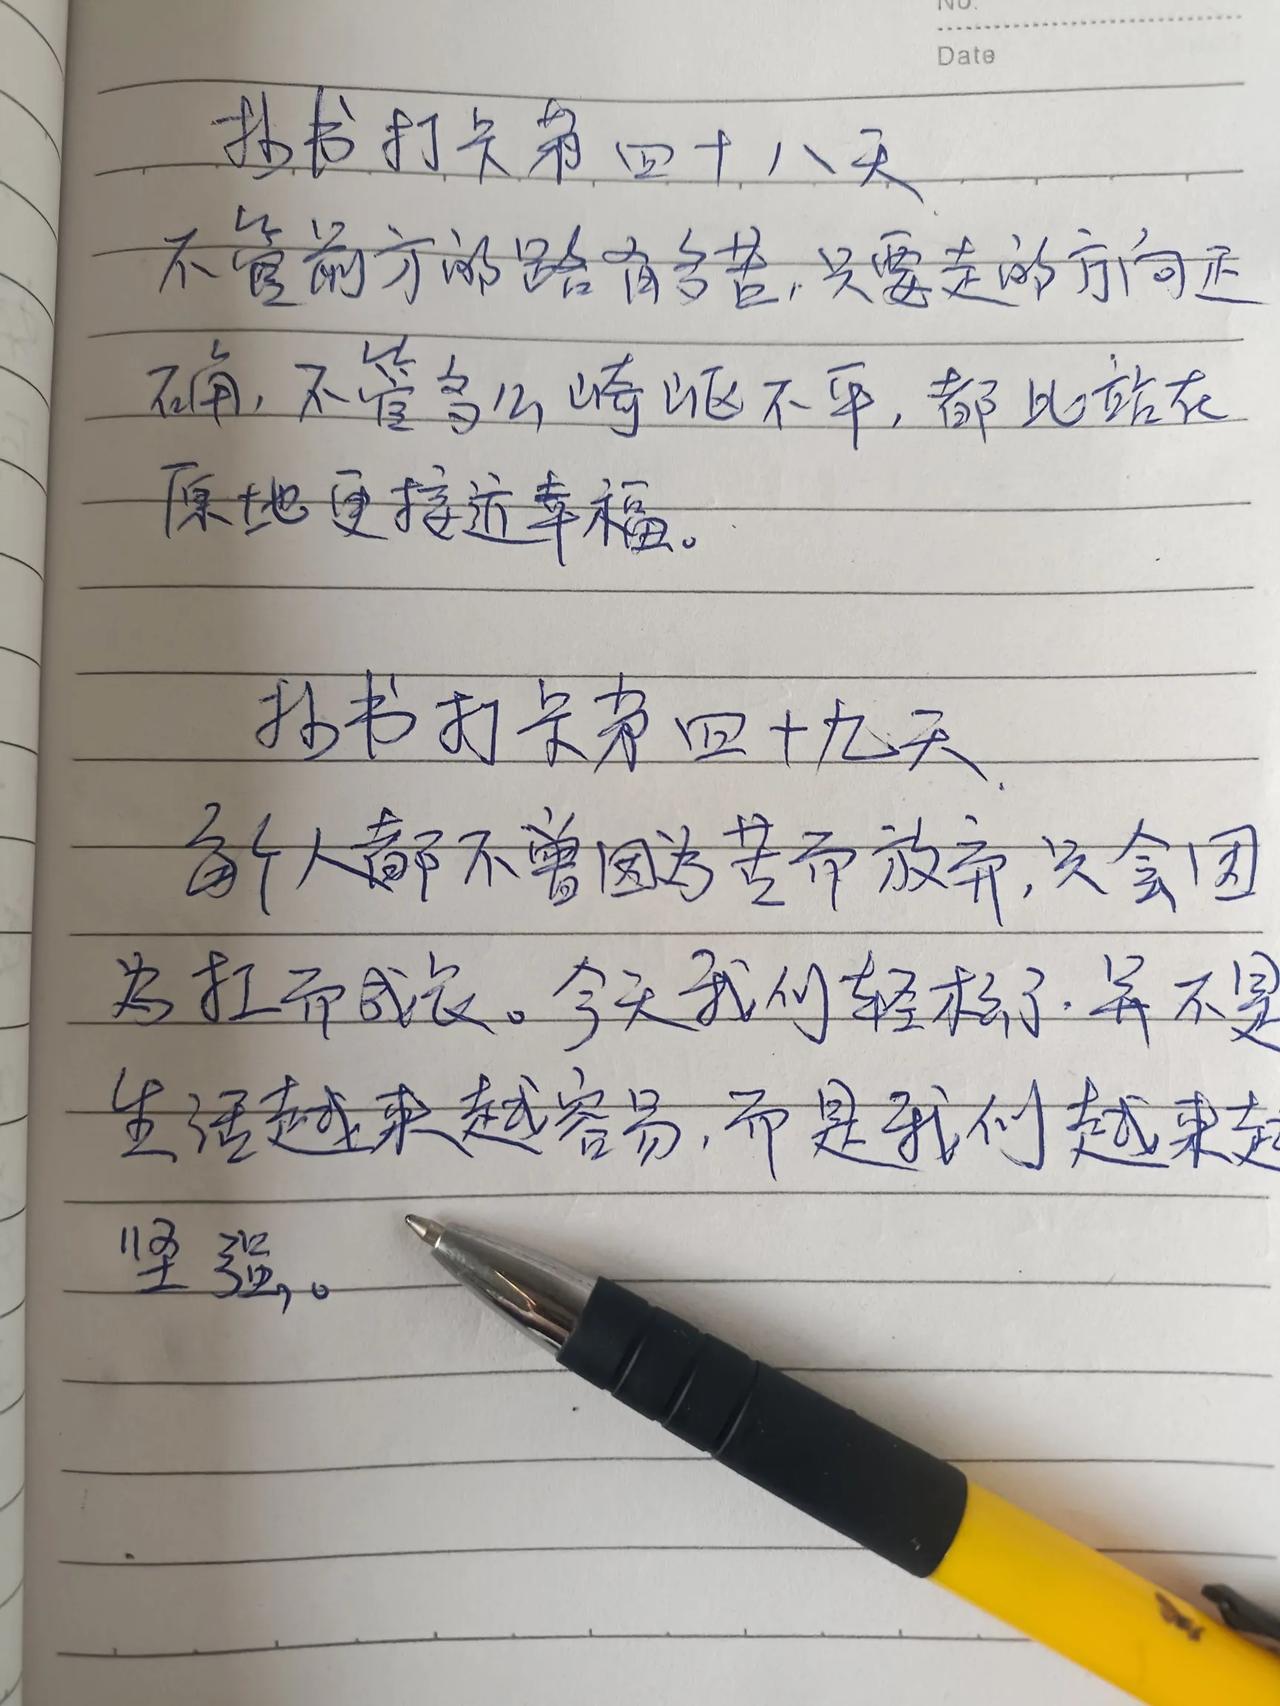 No.
Date
抄书打卡第四十八天
不管前方的路有多苦,只要走的方向正
确,不管多么崎岖不平,都比站在
原地更接近幸福。
抄书打卡第四十九天.
每个人都不曾因为苦而放弃,只会因
为扛而成长。今天我们轻松了.并不是
生活越来越容易,而是我们越来越
坚强。